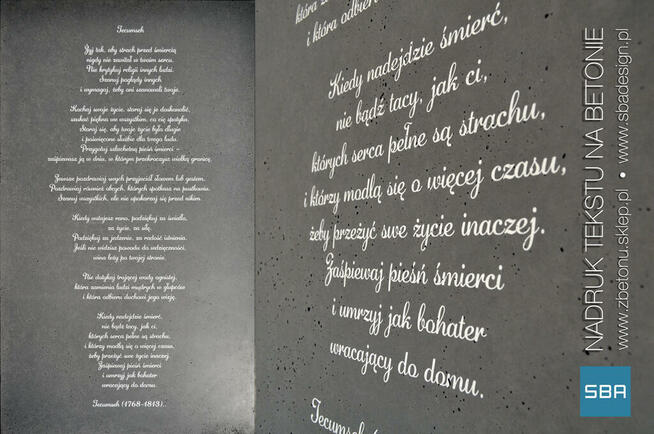 Tecumseh
Żyj tak, aby strach przed śmiercią
nigdy nie zawitał w twoim sercu.
Nie krytykuj religii innych ludzi.
Szanuj poglądy innych
i wymagaj, żeby oni szanowali twoje.
Kochaj swoje życie, staraj się je doskonalić,
szukać piękna we wszystkim, co cię spotyka.
Staraj się, aby twoje życie było długie
i poświęcone służbie dla twego ludu.
Przygotuj szlachetną pieśń śmierci –
zaśpiewasz ją w dniu, w którym przekroczysz wielką granicę.
Zawsze pozdrawiaj swych przyjaciół słowem lub gestem.
Pozdrawiaj również obcych, których spotkasz na pustkowiu.
Szanuj wszystkich, ale nie upokarzaj się przed nikim.
Kiedy wstajesz rano, podziękuj za światło,
za życie, za siłę.
Podziękuj za jedzenie, za radość istnienia.
Jeśli nie widzisz powodu do wdzięczności,
wina leży po twojej stronie.
Nie dotykaj trującej wody ognistej,
która zamienia ludzi mądrych w głupców
i która odbiera duchowi jego wizję.
Kiedy nadejdzie śmierć,
nie bądź tacy, jak ci,
których serca pełne są strachu,
i którzy modlą się o więcej czasu,
żeby przeżyć swe życie inaczej.
Zaśpiewaj pieśń śmierci
i umrzyj jak bohater
wracający do domu.
Tecumseh (1768-1813)..
która
i która odbiera
Kiedy nadejdzie śmierć,
nie bądź tacy, jak ci,
których serca pełne są strachu,
i którzy modlą się o więcej czasu,
żeby przeżyć swe życie inaczej.
Zaśpiewaj pieśń śmierci
i umrzyj jak bohater
wracający do domu.
Tecumseh
NADRUK TEKSTU NA BETONIE
www.zbetonu.sklep.pl • www.sbadesign.pl
SBA